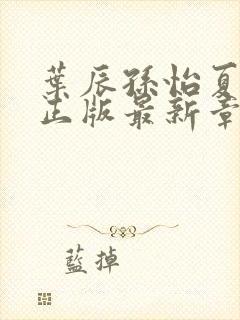 葉辰孫怡夏
正版最新章
藍掉